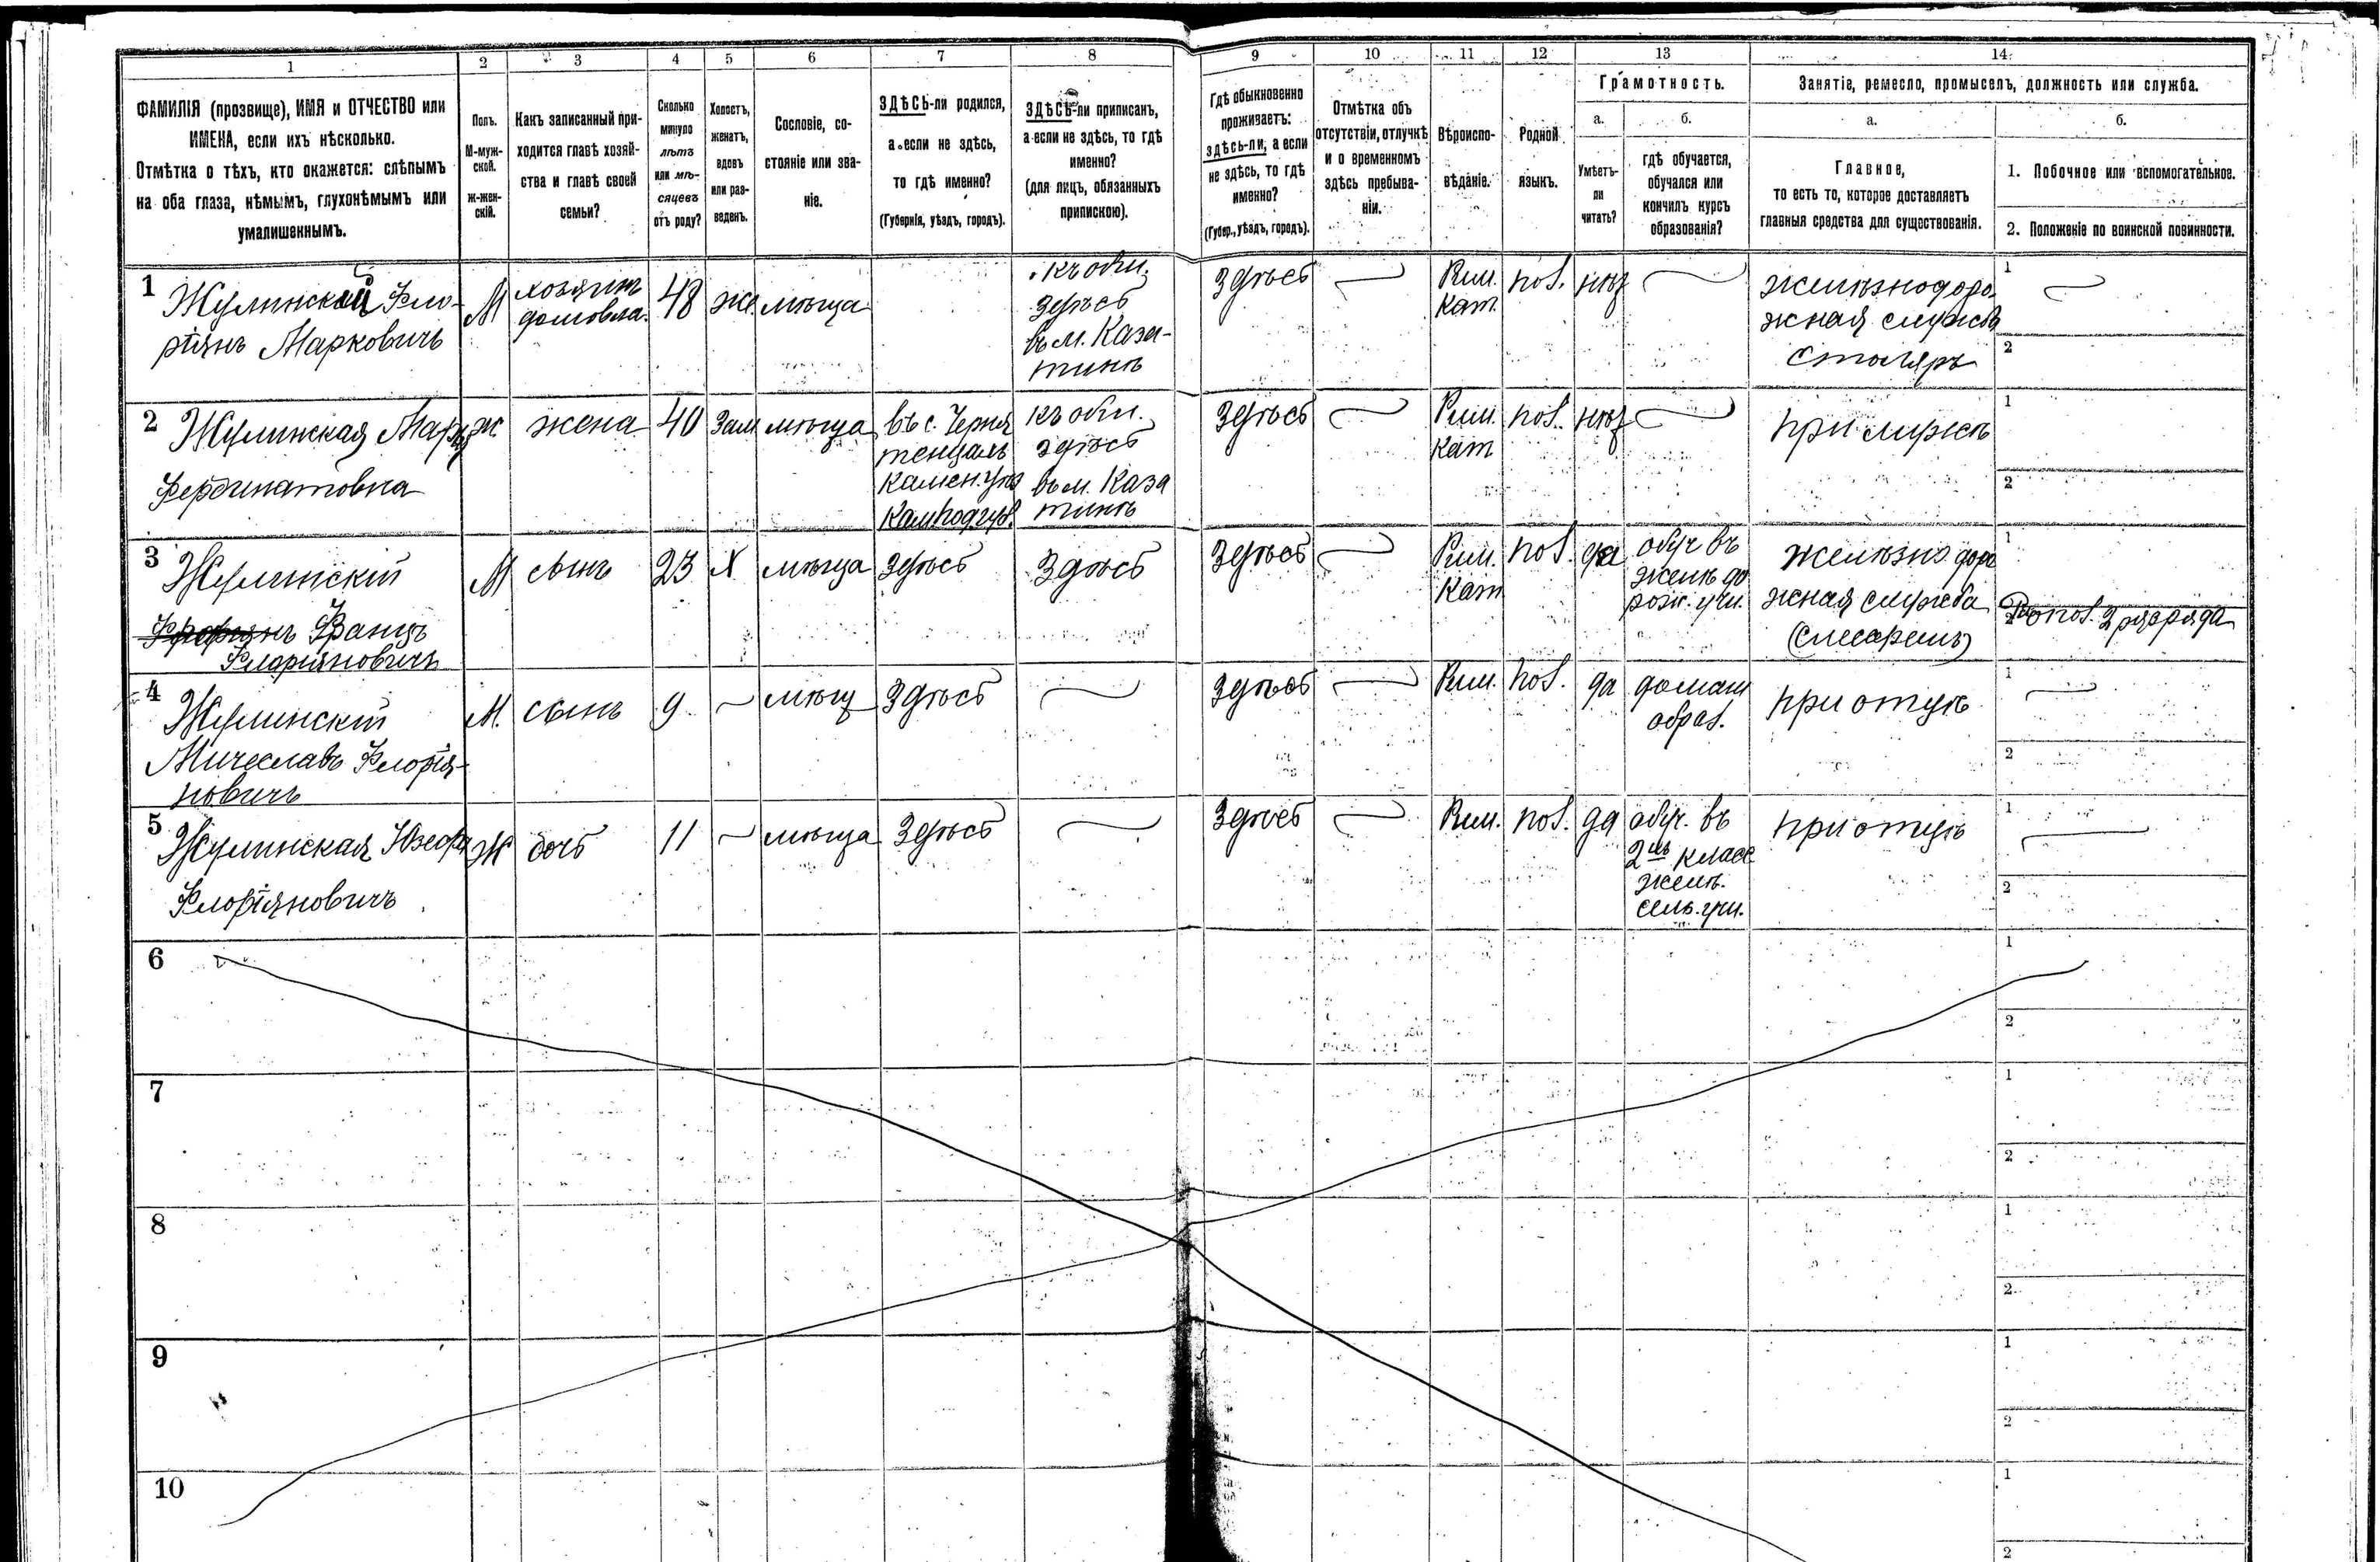 1 2 3 4 5 6 7 8 9 10 11 12 13 14
ФАМИЛІЯ (прозвище), ИМЯ и ОТЧЕСТВО или
ИМЕНА, если ихъ нѣсколько.
Отмѣтка о тѣхъ, кто окажется: слѣпымъ
на оба глаза, нѣмымъ, глухонѣмымъ или
умалишеннымъ.
Полъ.
М-муж-
ской.
ж-жен-
скій.
Какъ записанный при-
ходится главѣ хозяй-
ства и главѣ своей
семьи?
Сколько
минуло
лѣтъ
или мѣ-
сяцевъ
отъ роду?
Холостъ,
женатъ,
вдовъ
или раз-
веденъ.
Сословіе, со-
стояніе или зва-
ніе.
ЗДѢСЬ-ли родился,
а если не здѣсь,
то гдѣ именно?
(Губернія, уѣздъ, городъ).
ЗДѢСЬ-ли приписанъ,
а если не здѣсь, то гдѣ
именно?
(для лицъ, обязанныхъ
припискою).
Гдѣ обыкновенно
проживаетъ:
здѣсь-ли, а если
не здѣсь, то гдѣ
именно?
(Губер., уѣздъ, городъ).
Отмѣтка объ
отсутствіи, отлучкѣ
и о временномъ
здѣсь пребыва-
ніи.
Вѣроиспо-
вѣданіе.
Родной
языкъ.
Грамотность.
а.
Умѣетъ-
ли
читать?
б.
гдѣ обучается,
обучался или
кончилъ курсъ
образованія?
Занятіе, ремесло, промыселъ, должность или служба.
а.
Главное,
то есть то, которое доставляетъ
главныя средства для существованія.
б.
1. Побочное или вспомогательное.
2. Положеніе по воинской повинности.
1
Жулинскій Фло-
ріянъ Марковичъ
М
хозяинъ
домовла.
48
же.
мѣща
къ общ.
здѣсь
въ м. Каза-
тинѣ
здѣсь
Рим.
кат.
пол.
нѣт
желѣзнодоро-
жная служба
столяръ
1
2
2
Жулинская Марія
Фердинатовна
ж.
жена
40
зам
мѣща
въ с. Черня
Камен. уѣз
Кам. под. губ.
къ общ.
здѣсь
въ м. Каза
тинѣ
здѣсь
Рим.
кат
пол.
нѣт
при мужѣ
1
2
3
Жулинскій
Францъ
Флоріяновичъ
М
сынъ
23
Х
мѣща
здѣсь
здѣсь
здѣсь
Рим.
кат
пол.
да
обуч въ
желѣ до
рож. учи.
желѣзно доро
жная служба
(слесаремъ)
1
2
2 разряда
4
Жулинскій
Мичеславъ Флорія-
новичъ
М.
сынъ
9
мѣщ
здѣсь
здѣсь
Рим.
пол.
да
домаш
образ.
при отцѣ
1
2
5
Жулинская Юзефа
Флоріяновичъ
Ж
дочь
11
мѣща
здѣсь
здѣсь
Рим.
пол.
да
обуч. въ
2мъ класс
желѣ.
сель. учи.
при отцѣ
1
2
6
1
2
7
1
2
8
1
2
9
1
2
10
1
2